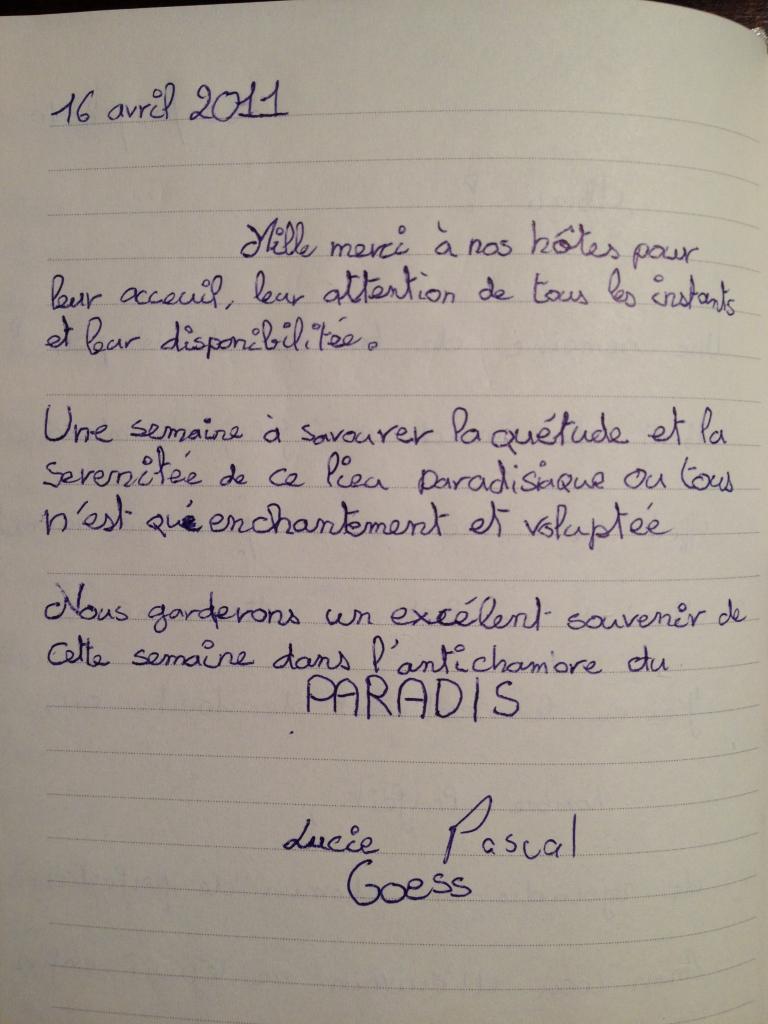 16 avril 2011
Mille merci à nos hôtes pour
leur acceuil, leur attention de tous les instants
et leur disponibilitée.
Une semaine à savourer la quétude et la
serenitée de ce lieu paradisiaque ou tous
n'est que enchantement et voluptée
Nous garderons un excélent souvenir de
cette semaine dans l'antichambre du
PARADIS
Lucie Pascal
Goess